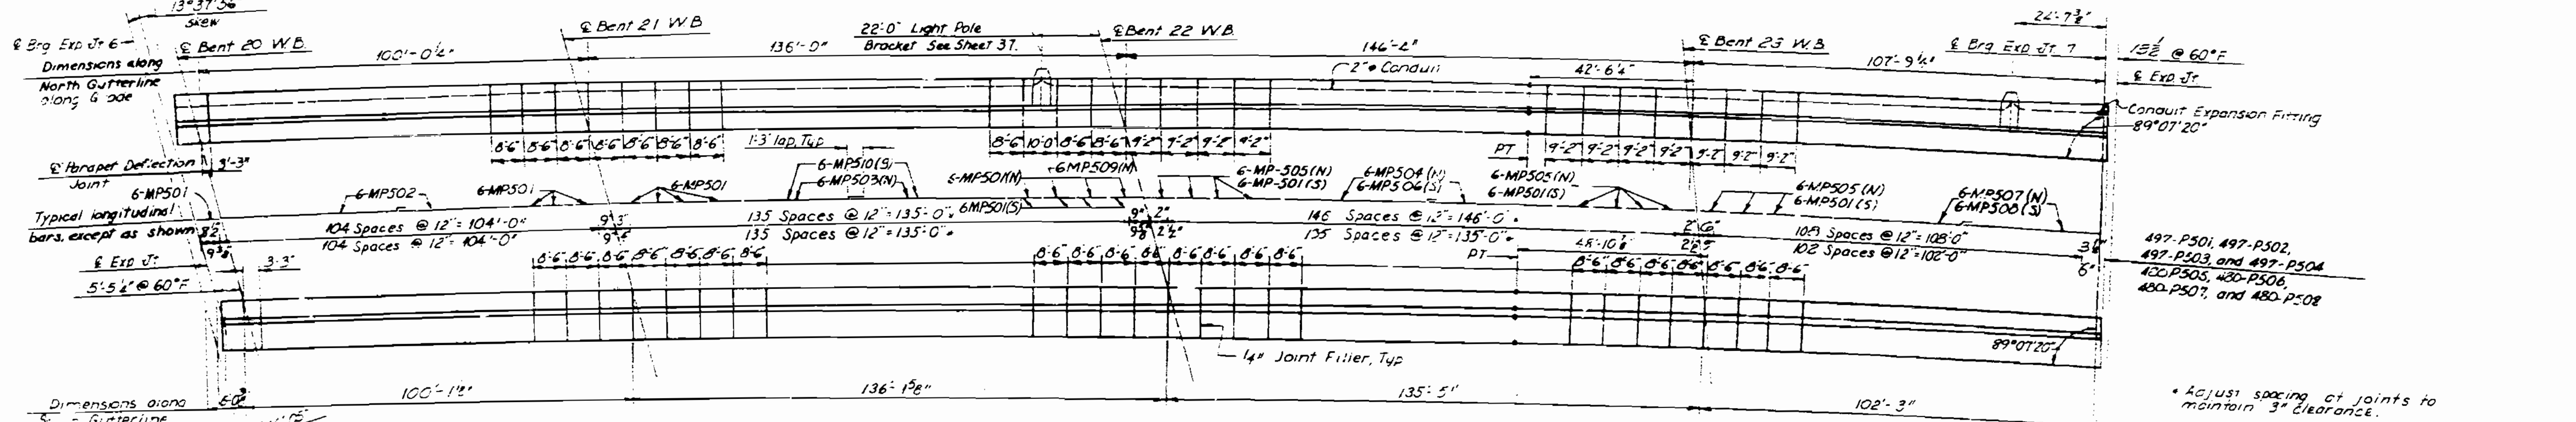 13°37'56"
skew
₵ Brg Exp Jt 6
₵ Bent 20 W.B.
₵ Bent 21 W.B
22'-0" Light Pole
Bracket See Sheet 37.
₵ Bent 22 W.B.
₵ Bent 23 W.B
₵ Brg Exp Jt 7
24'-7⅜"
@ 60°F
₵ Exp. Jt
Dimensions along
North Gutterline
along Grade
100'-0¼"
136'-0"
146'-2"
107'-9¼"
2"ø Conduit
42'-6¼"
Conduit Expansion Fitting
89°07'20"
8'-6" 8'-6" 8'-6" 8'-6" 8'-6" 8'-6" 8'-6"
1'-3" lap, Typ
8'-6" 10'-0" 8'-6" 8'-6" 9'-2" 9'-2" 9'-2" 9'-2"
PT
9'-2" 9'-2" 9'-2" 9'-2" 9'-2" 9'-2" 9'-2"
₵ Parapet Deflection
Joint
3'-3"
6-MP501
6-MP502
6-MP501
6-MP501
6-MP510(S)
6-MP503(N)
6-MP501(N)
6MP509(N)
6MP501(S)
6-MP-505(N)
6-MP-501(S)
6-MP504(N)
6-MP506(S)
6-MP505(N)
6-MP501(S)
6-MP505(N)
6-MP501(S)
6-MP507(N)
6-MP508(S)
Typical longitudinal
bars, except as shown
104 Spaces @ 12" = 104'-0"
104 Spaces @ 12" = 104'-0"
135 Spaces @ 12" = 135'-0"
135 Spaces @ 12" = 135'-0"
146 Spaces @ 12" = 146'-0"
135 Spaces @ 12" = 135'-0"
108 Spaces @ 12" = 108'-0"
102 Spaces @ 12" = 102'-0"
497-P501, 497-P502,
497-P503, and 497-P504
480-P505, 480-P506,
480-P507, and 480-P508
₵ Exp Jt
3'-3"
5'-5¼" @ 60°F
8'-6" 8'-6" 8'-6" 8'-6" 8'-6" 8'-6" 8'-6"
8'-6" 8'-6" 8'-6" 8'-6" 8'-6" 8'-6" 8'-6" 8'-6"
PT
8'-6" 8'-6" 8'-6" 8'-6" 8'-6" 8'-6" 8'-6"
¼" Joint Filler, Typ
89°07'20"
Dimensions along
Gutterline
100'-1⅛"
136'-1⅝"
135'-5"
102'-3"
* Adjust spacing at joints to
maintain 3" clearance.